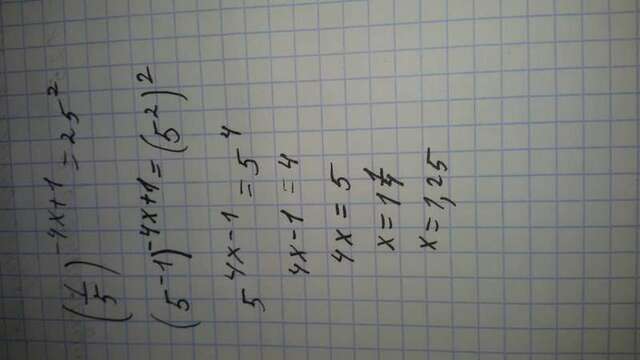 (1/5)^-4x+1 = 25^2
(5^-1)^-4x+1 = (5^2)^2
5^4x-1 = 5^4
4x-1 = 4
4x = 5
x = 1 1/4
x = 1,25